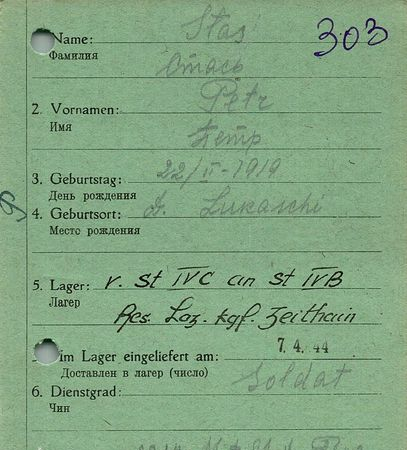 303
Name: Stas
Фамилия Стась
2. Vornamen: Petr
Имя Петр
3. Geburtstag: 22/II-1919
День рождения
4. Geburtsort: d. Lukaschi
Место рождения
5. Lager: v. St IVC an St IVB
Лагерь
Res. Laz. kgf. Zeithain
im Lager eingeliefert am: 7. 4. 44
Доставлен в лагерь (число)
6. Dienstgrad: Soldat
Чин